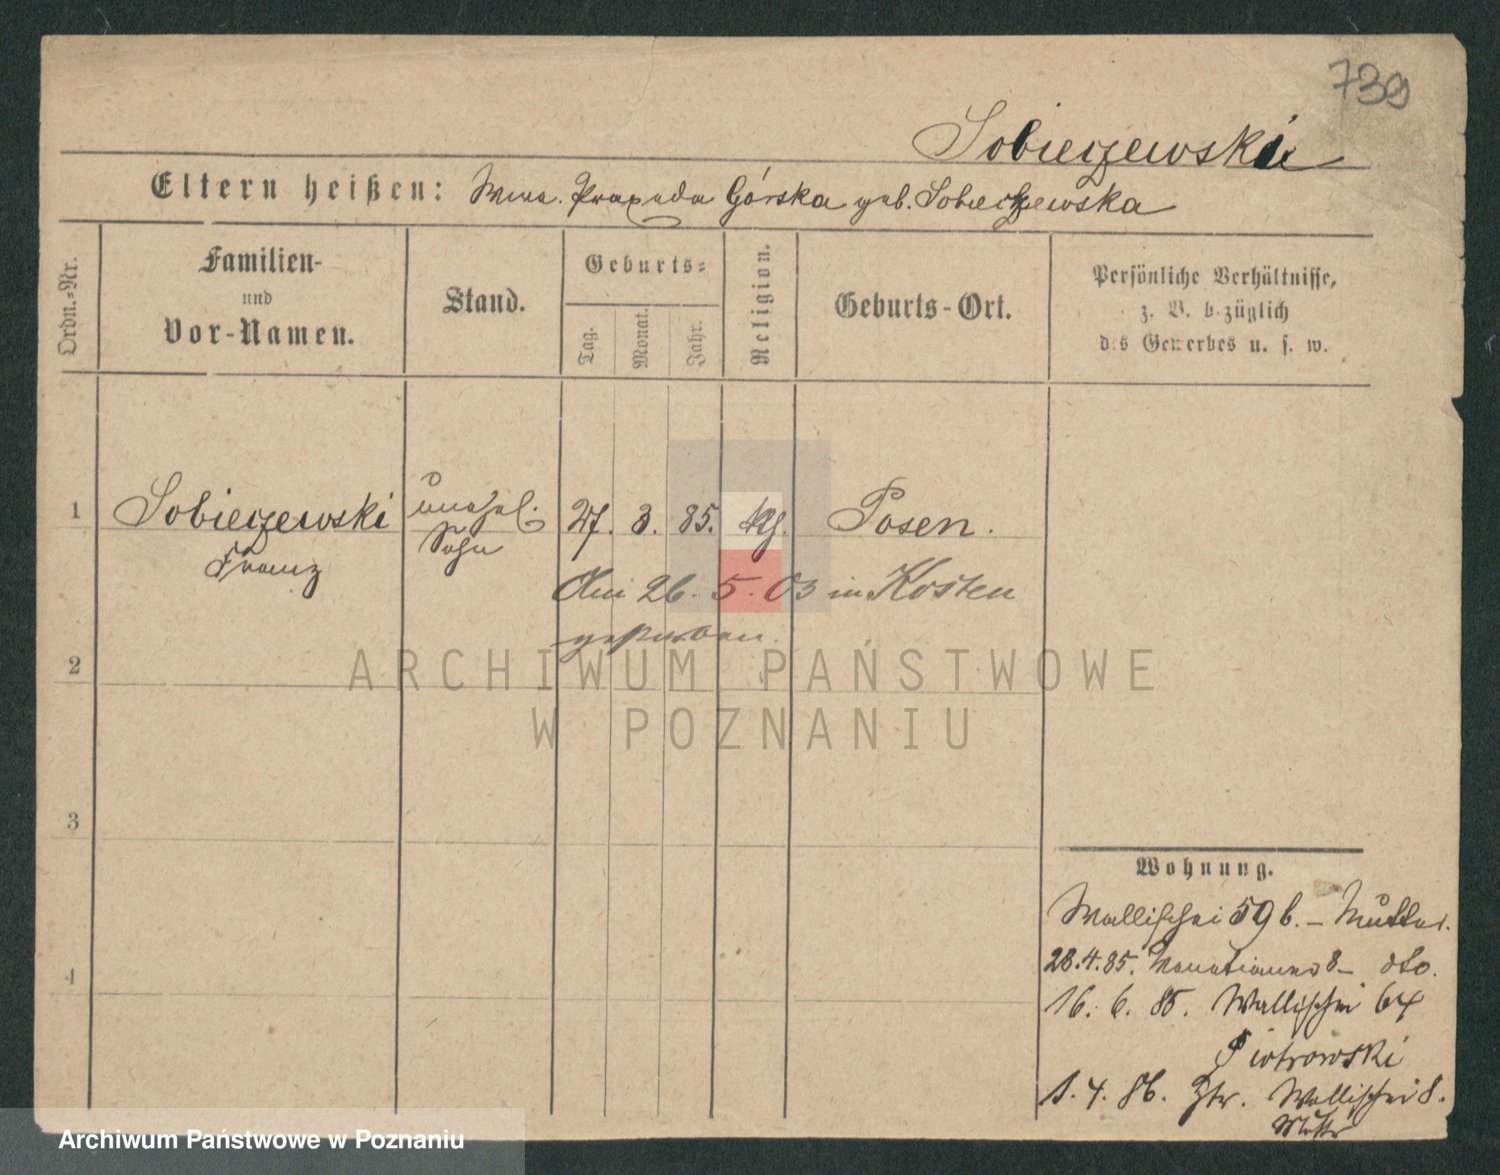 739
Sobieczewski
Eltern heißen: Wwe. Praxeda Górska geb. Sobieczewska
Ordn.=Nr.
Familien- und Vor-Namen.
Stand.
Geburts=
Tag.
Monat.
Jahr.
Religion.
Geburts-Ort.
Persönliche Verhältnisse,
z. B. bezüglich
des Gewerbes u. s. w.
1 Sobieczewski unehel. 27. 3. 85. kth. Posen.
Franz Sohn
Am 26. 5. 03 in Kosten
gestorben.
2
3
4
Wohnung.
Wallischei 59 b. – Mutter.
28.4.85. 8 – dto.
16. 6. 85. Wallischei 64
Piotrowski
1. 4. 86. Wallischei 8.
Mutter
ARCHIWUM PAŃSTWOWE
W POZNANIU
Archiwum Państwowe w Poznaniu